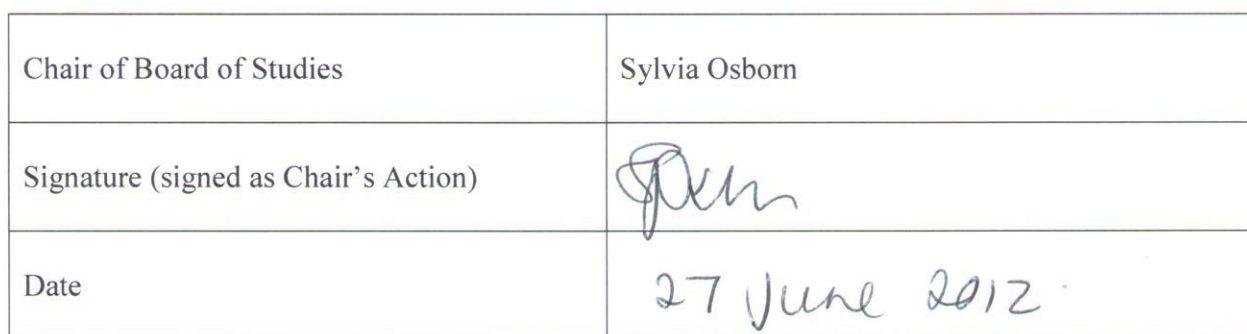 Chair of Board of Studies
Sylvia Osborn
Signature (signed as Chair's Action)
Date
27 June 2012